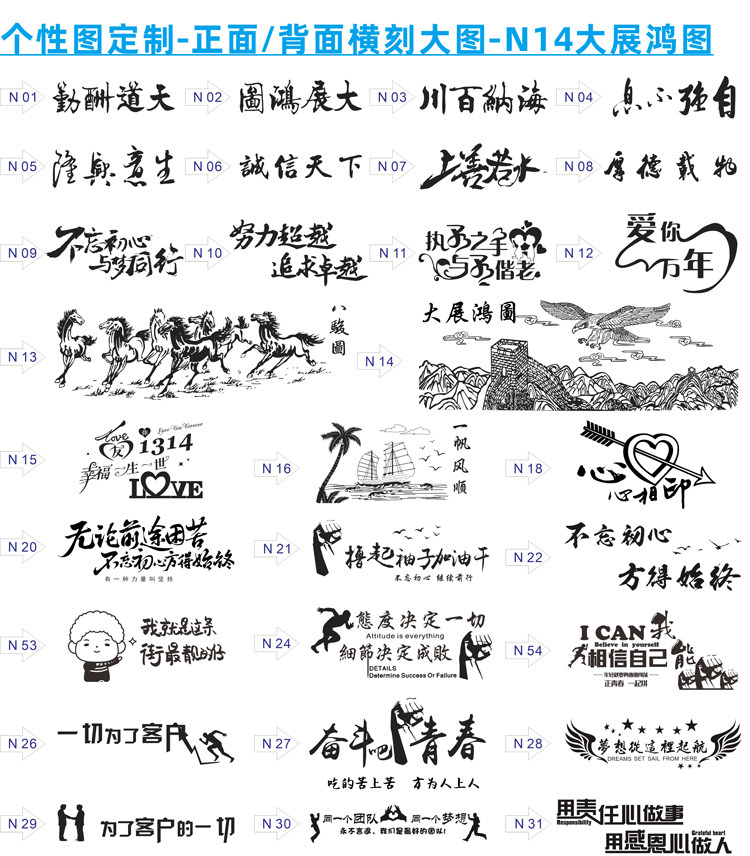 个性图定制-正面/背面横刻大图-N14大展鸿图
N 01
勤酬道天
N 02
圖鴻展大
N 03
川百納海
N 04
息不强自
N 05
隆興意生
N 06
誠信天下
N 07
上善若水
N 08
厚德載物
N 09
不忘初心
与梦同行
N 10
努力超越
追求卓越
N 11
执子之手
与子偕老
N 12
爱你
万年
N 13
八駿圖
N 14
大展鴻圖
N 15
Love
Love You Forever
1314
幸福一生一世
LOVE
N 16
一帆风顺
N 18
心心相印
N 20
无论前途困苦
不忘初心方得始终
有一种力量叫坚持
N 21
撸起袖子加油干
不忘初心 继续前行
N 22
不忘初心
方得始终
N 53
我就是这条
街最靓的仔
N 24
態度决定一切
Attitude is everything
細節决定成敗
DETAILS
Determine Success Or Failure
N 54
I CAN 我能
Believe in yourself
相信自己
正青春 一起拼
N 26
一切为了客户
N 27
奋斗吧青春
吃的苦上苦 方为人上人
N 28
夢想從這裡起航
DREAMS SET SAIL FROM HERE
N 29
为了客户的一切
N 30
同一个团队 同一个梦想
永不言退，我们是最好的团队!
N 31
用责任心做事
Responsibility
Grateful heart
用感恩心做人